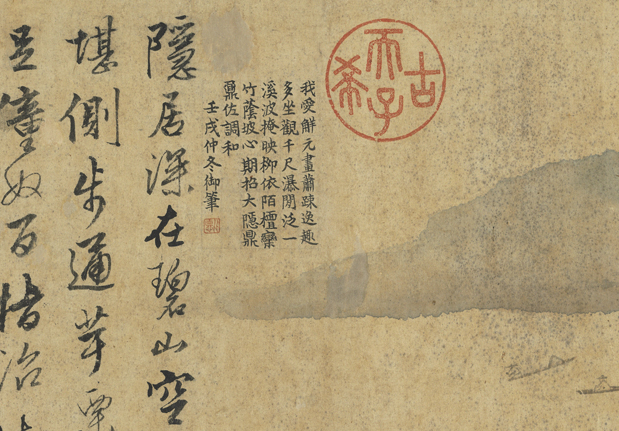 古希天子
我愛解元畫蕭疎逸趣
多坐觀千尺瀑閒泛一
溪波掩映柳依陌檀欒
竹蔭坡心期招大隱鼎
鼐佐調和
壬戌仲冬御筆
隱居深在碧山空
堪側步通茅
奴百指治